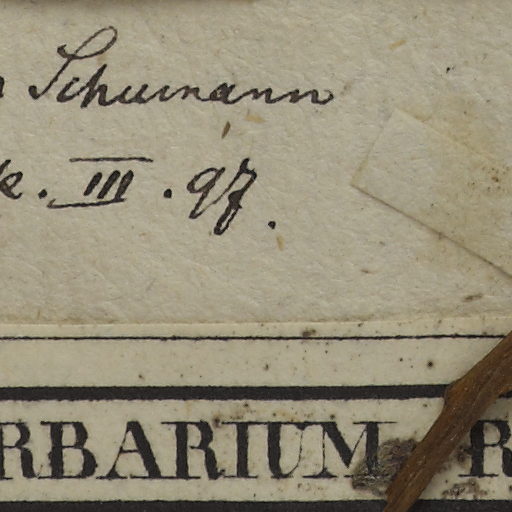 Schumann
. III . 97.
RBARIUM R